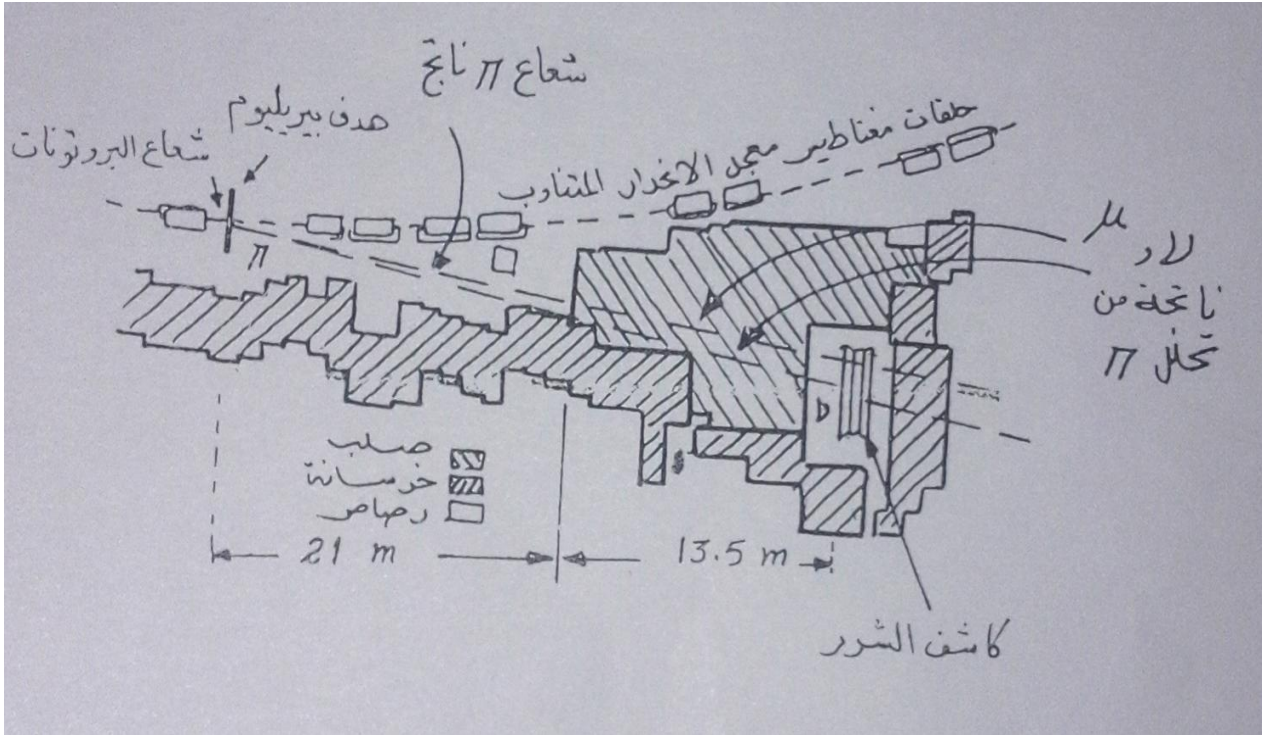 شعاع π ناتج
هدف بيريليوم
شعاع البروتونات
حلقات مغناطيس معجل الانحدار المتناوب
π
μ
و ν
ناتجة من
تحلل π
صلب
خرسانة
رصاص
D
21 m
13.5 m
كاشف الشرر